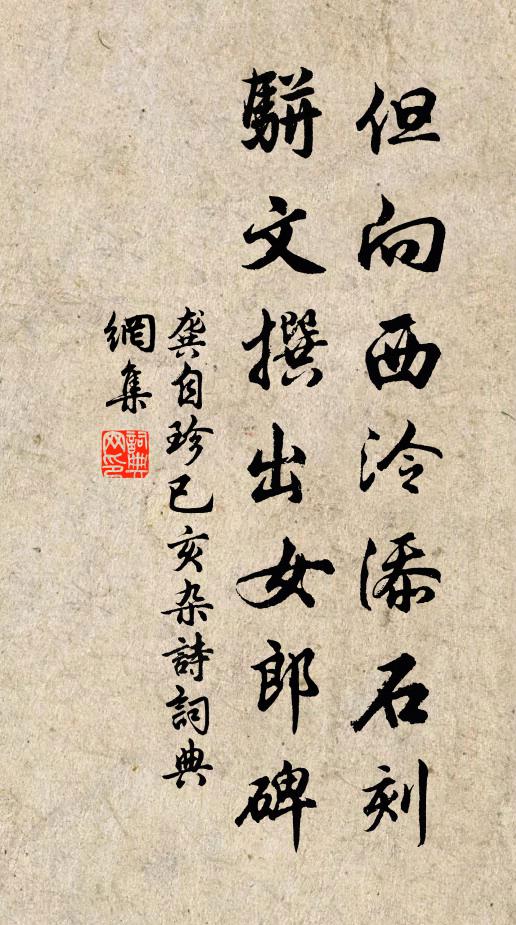 但向西泠添石刻
駢文撰出女郎碑
龔自珍己亥杂詩詞典
網集
詞典
网印